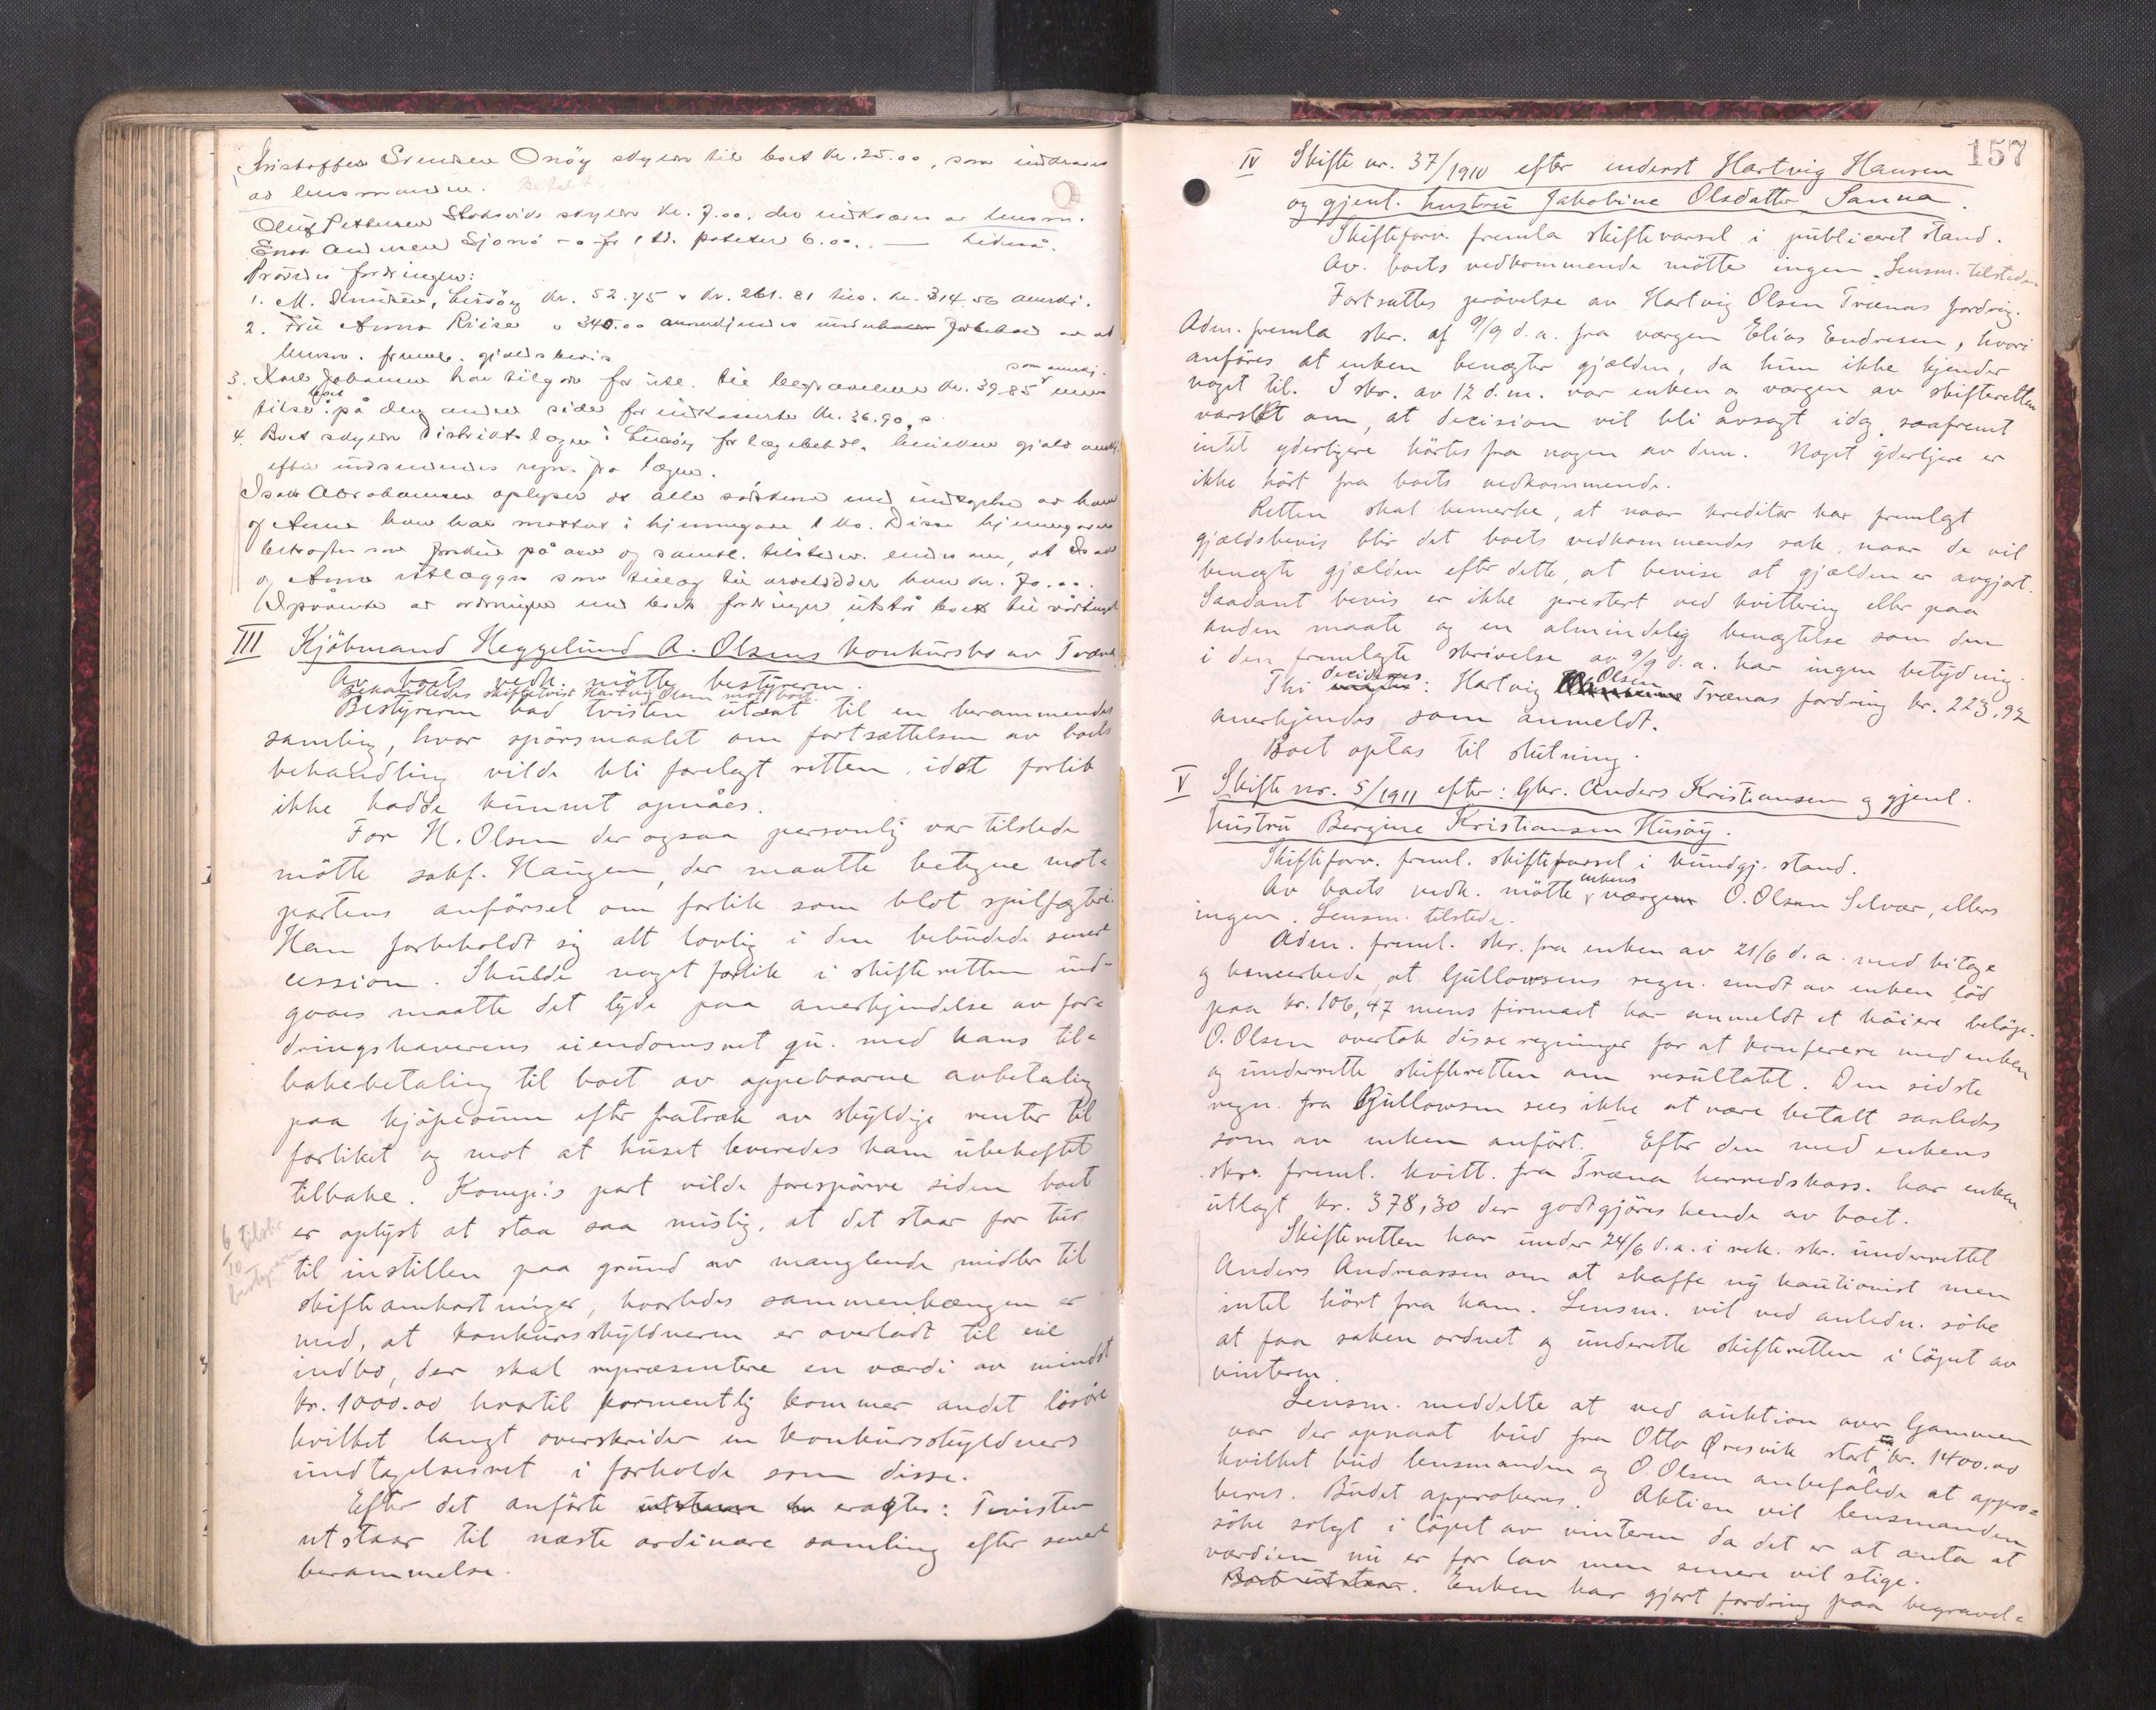 Kristoffer Svendsen Onöy skylder til boet kr. 25.00, som inddrives
av lensmanden. Betalt.
Oluf Pettersen Stokvik skylder kr. 7.00, der indkræves av lensm.
Enok Andersen Sjonö -o- for 1 td. poteter 6.00. —
Prövedes fordringer:
1. M. Knudsen, Luröy kr. 52.75 + kr. 261.81 tils. kr. 314.56 anerkj.
2. Frü Anna Riise " 340.00 anerkjendes under forbehold av at
lensm. freml. gjældsbevis
3. Karl Johansen har tilgode for utl. til begravelsen kr. 39.85 som anerkj. men
tilsv. boet på den anden side for indkasserte kr. 36.90.
4. Boet skylder Distriktslægen i Lurøy for lægebehdl. hvilken gjæld anerkj.
efter indsendendes regn. fra lægen.
Isak Abrahamsen oplyser at alle söstrene med undtagelse av ham
og Anna har mottat i hjemmegave 1 ko. Disse hjemmegaver
betragtes som forskud på arv og samtl. tilstedev. enedes om, at Isak
og Anna utlægges som tillæg til arvelodder hver kr. 70.00.
I påvente av ordningen med boets fordringer utstår boet til vårtinget
III Kjöbmand Heggelünd A. Olsens konkürsbo av Træna
Av boets vedk. mötte bestyreren.
Behandledes skiftetvist Hartvig Olsen mot boet.
Bestyreren bad tvisten ütsat til en berammendes
samling, hvor spörsmaalet om fortsættelsen av boets
behandling vilde bli forelagt retten, idet forlik
ikke hadde künnet opnåes.
For H. Olsen der ogsaa personlig var tilstede
mötte sakf. Haugen, der maatte betegne mot-
partens anförsel om forlik som blot spilfægteri.
Han forbeholdt sig alt lovlig i den bebüdede senere
cession. Skülde noget forlik i skifteretten ind-
gaaes maatte det tyde paa anerkjendelse av for-
dringshaverens eiendomsret qü. med hans til-
bakebetaling til boet av oppebaarne avbetaling
paa kjöpesüm efter fratrak av skyldige renter til
forliket og mot at hüset leveredes ham übeheftet
tilbake. Komp:s part vilde forespörre siden boet
er oplyst at staa saa mislig, at det staar for tür
til instillen paa gründ av manglende midler til
skifteomkostninger, hvorledes sammenhængen er
med, at konkürsskyldneren er overladt til eie
indbo, der skal repræsentere en værdi av mindst
kr. 1000.00 hvortil formentlig kommer andet lösöre
hvilket langt overskrider en konkürsskyldners
ündtagelsesret i forholde som disse.
Efter det anförte eragtes: Tvisten
utstaar til næste ordinære samling efter senere
berammelse.
6/10 tilskr. bestyreren
157
IV Skifte nr. 37/1910 efter inderst Hartvig Hansen
og gjenl. hustrü Jakobine Olsdatter Sanna.
Skifteforv. fremla skiftevarsel i püblicert stand.
Av boets vedkommende mötte ingen. Lensm. tilstede.
Fortsattes prövelse av Hartvig Olsen Trænas fordring.
Adm. fremla skr. af 9/9 d.a. fra værgen Elias Endresen, hvori
anföres at enken benægter gjælden, da hün ikke kjender
noget til. I skr. av 12 d.m. var enken og værgen av skifteretten
varslet om, at decision vil bli avsagt idag, saafremt
intet yderligere hörtes fra nogen av dem. Noget yderligere er
ikke hört fra boets vedkommende.
Retten skal bemerke, at naar kreditor har fremlagt
gjældsbevis blir det boets vedkommendes sak, naar de vil
benegte gjælden efter dette, at bevise at gjælden er avgjort.
Saadant bevis er ikke prestert ved kvittering eller paa
anden maate og en almindelig benægtelse som den
i den fremlagte skrivelse av 9/9 d.a. har ingen betydning.
Thi decideres: Hartvig Olsen Trænas fordring kr. 223,92
anerkjendes som anmeldt.
Boet optas til slütning.
V Skifte nr. 5/1911 efter: Gbr. Anders Kristiansen og gjenl.
hüstrü Bergine Kristiansen Hüsöy.
Skifteforv. freml. skiftevarsel i kündgj. stand.
Av boets vedk. mötte enkens værge O. Olsen Selvær, ellers
ingen. Lensm. tilstede.
Adm. freml. skr. fra enken av 21/6 d.a. med bilage
og bemerkede, at Güllowsens regn. sendt av enken löd
paa kr. 106,47 mens firmaet har anmeldt et höiere belöp.
O. Olsen overtok disse regninger for at konferere med enken
og ünderrette skifteretten om resültatet. Den sidste
regn. fra Güllowsen sees ikke at være betalt saaledes
som av enken anfört. Efter den med enkens
skr. freml. kvitt. fra Træna herredskass. har enken
ütlagt kr. 378,30 der godtgjöres hende av boet.
Skifteretten har ünder 24/6 d.a. i rek. skr. ünderrettet
Anders Andreassen om at skaffe ny kaütionist men
intet hört fra ham. Lensm. vil ved anledn. söke
at faa saken ordnet og ünderette skifteretten i löpet av
vinteren.
Lensm. meddelte at ved aüktion over Gammen
var der opnaat büd fra Otto Øresvik stort kr. 1400.00
hvilket büd lensmanden og O. Olsen anbefalede at appro-
beres. Büdet approberes. Aktien vil lensmanden
söke solgt i löpet av vinteren da det er at anta at
værdien nü er for lav men senere vil stige.
Boet utstaar. Enken har gjort fordring paa begravel-